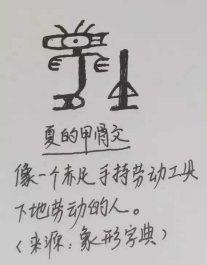 夏的甲骨文
像一个赤足手持劳动工具
下地劳动的人。
（来源：象形字典）